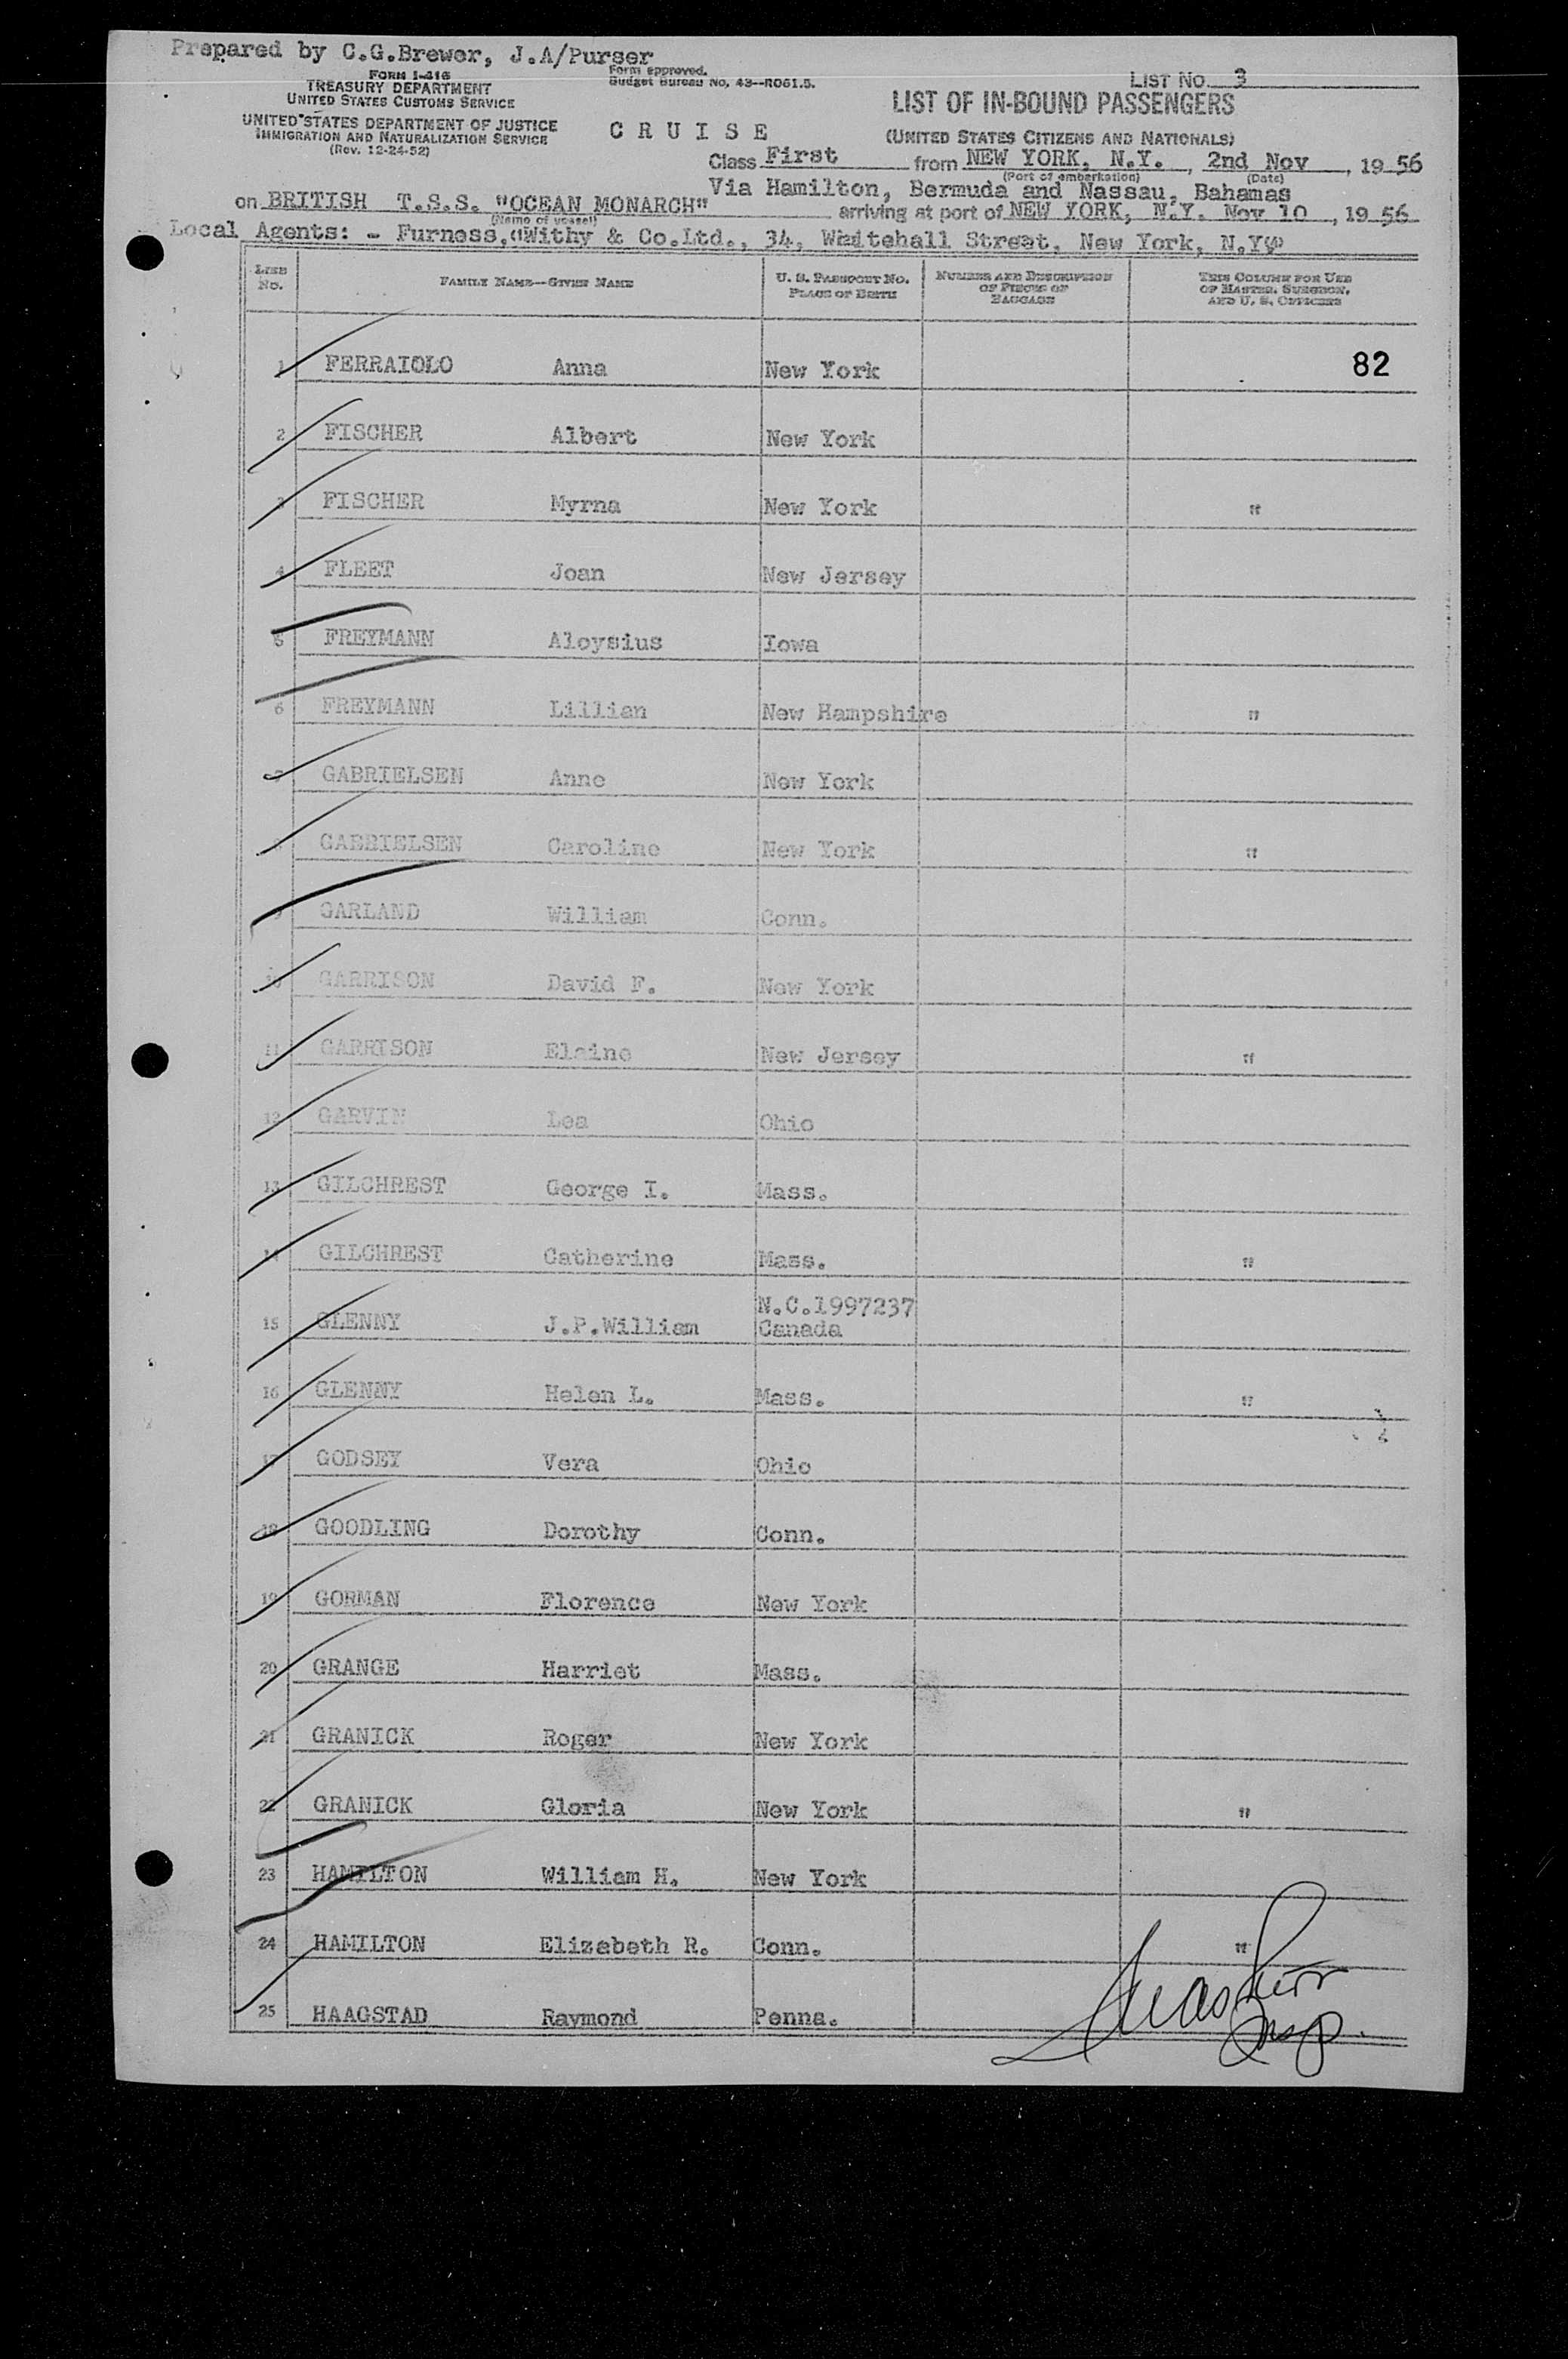 Prepared by C.G.Brewer, J.A/Purser
FORM I-416
TREASURY DEPARTMENT
UNITED STATES CUSTOMS SERVICE
UNITED STATES DEPARTMENT OF JUSTICE
IMMIGRATION AND NATURALIZATION SERVICE
(Rev. 12-24-52)
Form approved.
Budget Bureau No. 43--R061.5.
CRUISE
LIST NO. 3
LIST OF IN-BOUND PASSENGERS
(UNITED STATES CITIZENS AND NATIONALS)
Class First from NEW YORK, N.Y., 2nd Nov, 1956
(Port of embarkation) (Date)
Via Hamilton, Bermuda and Nassau, Bahamas
on BRITISH T.S.S. "OCEAN MONARCH" arriving at port of NEW YORK, N.Y. Nov 10, 1956
(Name of vessel)
Local Agents: - Furness, Withy & Co.Ltd., 34, Whitehall Street, New York, N.Y.
LINE NO. FAMILY NAME--GIVEN NAME U. S. PASSPORT NO. PLACE OF BIRTH NUMBER AND DESCRIPTION OF PIECES OF BAGGAGE THIS COLUMN FOR USE OF MASTER, SURGEON, AND U. S. OFFICERS
1 FERRAIOLO Anna New York 82
2 FISCHER Albert New York
3 FISCHER Myrna New York "
4 FLEET Joan New Jersey
5 FREYMANN Aloysius Iowa
6 FREYMANN Lillian New Hampshire "
7 GABRIELSEN Anne New York
8 GABRIELSEN Caroline New York "
9 GARLAND William Conn.
10 GARRISON David F. New York
11 GARRISON Elaine New Jersey "
12 GARVIN Lea Ohio
13 GILCHREST George I. Mass.
14 GILCHREST Catherine Mass. "
15 GLENNY J.P.William N.C.1997237 Canada
16 GLENNY Helen L. Mass. "
17 GODSEY Vera Ohio
18 GOODLING Dorothy Conn.
19 GORMAN Florence New York
20 GRANGE Harriet Mass.
21 GRANICK Roger New York
22 GRANICK Gloria New York "
23 HAMILTON William H. New York
24 HAMILTON Elizabeth R. Conn. "
25 HAAGSTAD Raymond Penna.
Insp.